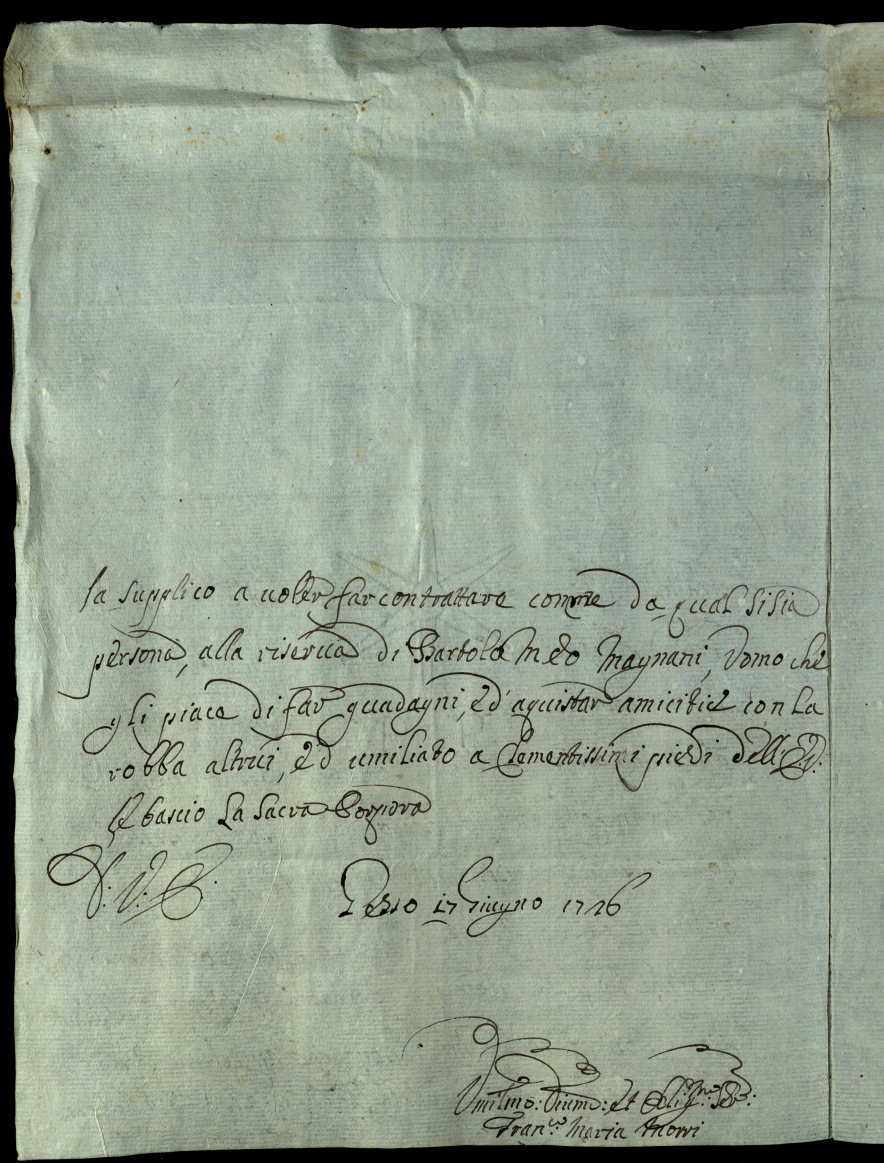 la supplico a voler far contrattare comme da qual sisia
persona, alla riserva di Bartolo Meo Magnani, Vomo che
gli piace di far guadagni, ed' aquistar amicitie con la
robba altrui, ed umiliato a Clementissimi piedi dell' E.V.
le bascio la Sacra Porpora
D. V. E.
17 Giugno 1726
Vmilmo: Diumo: et Oblig.mo Ser:
Fran.co Maria